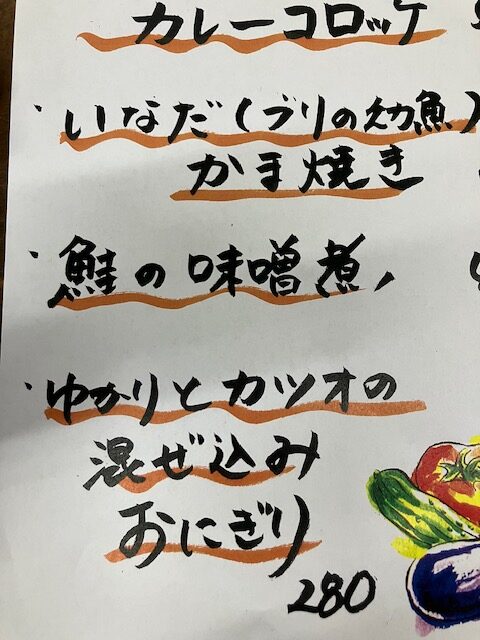 カレーコロッケ
・いなだ(ブリの幼魚)
かま焼き
・鮭の味噌煮
・ゆかりとカツオの
混ぜ込み
おにぎり
280